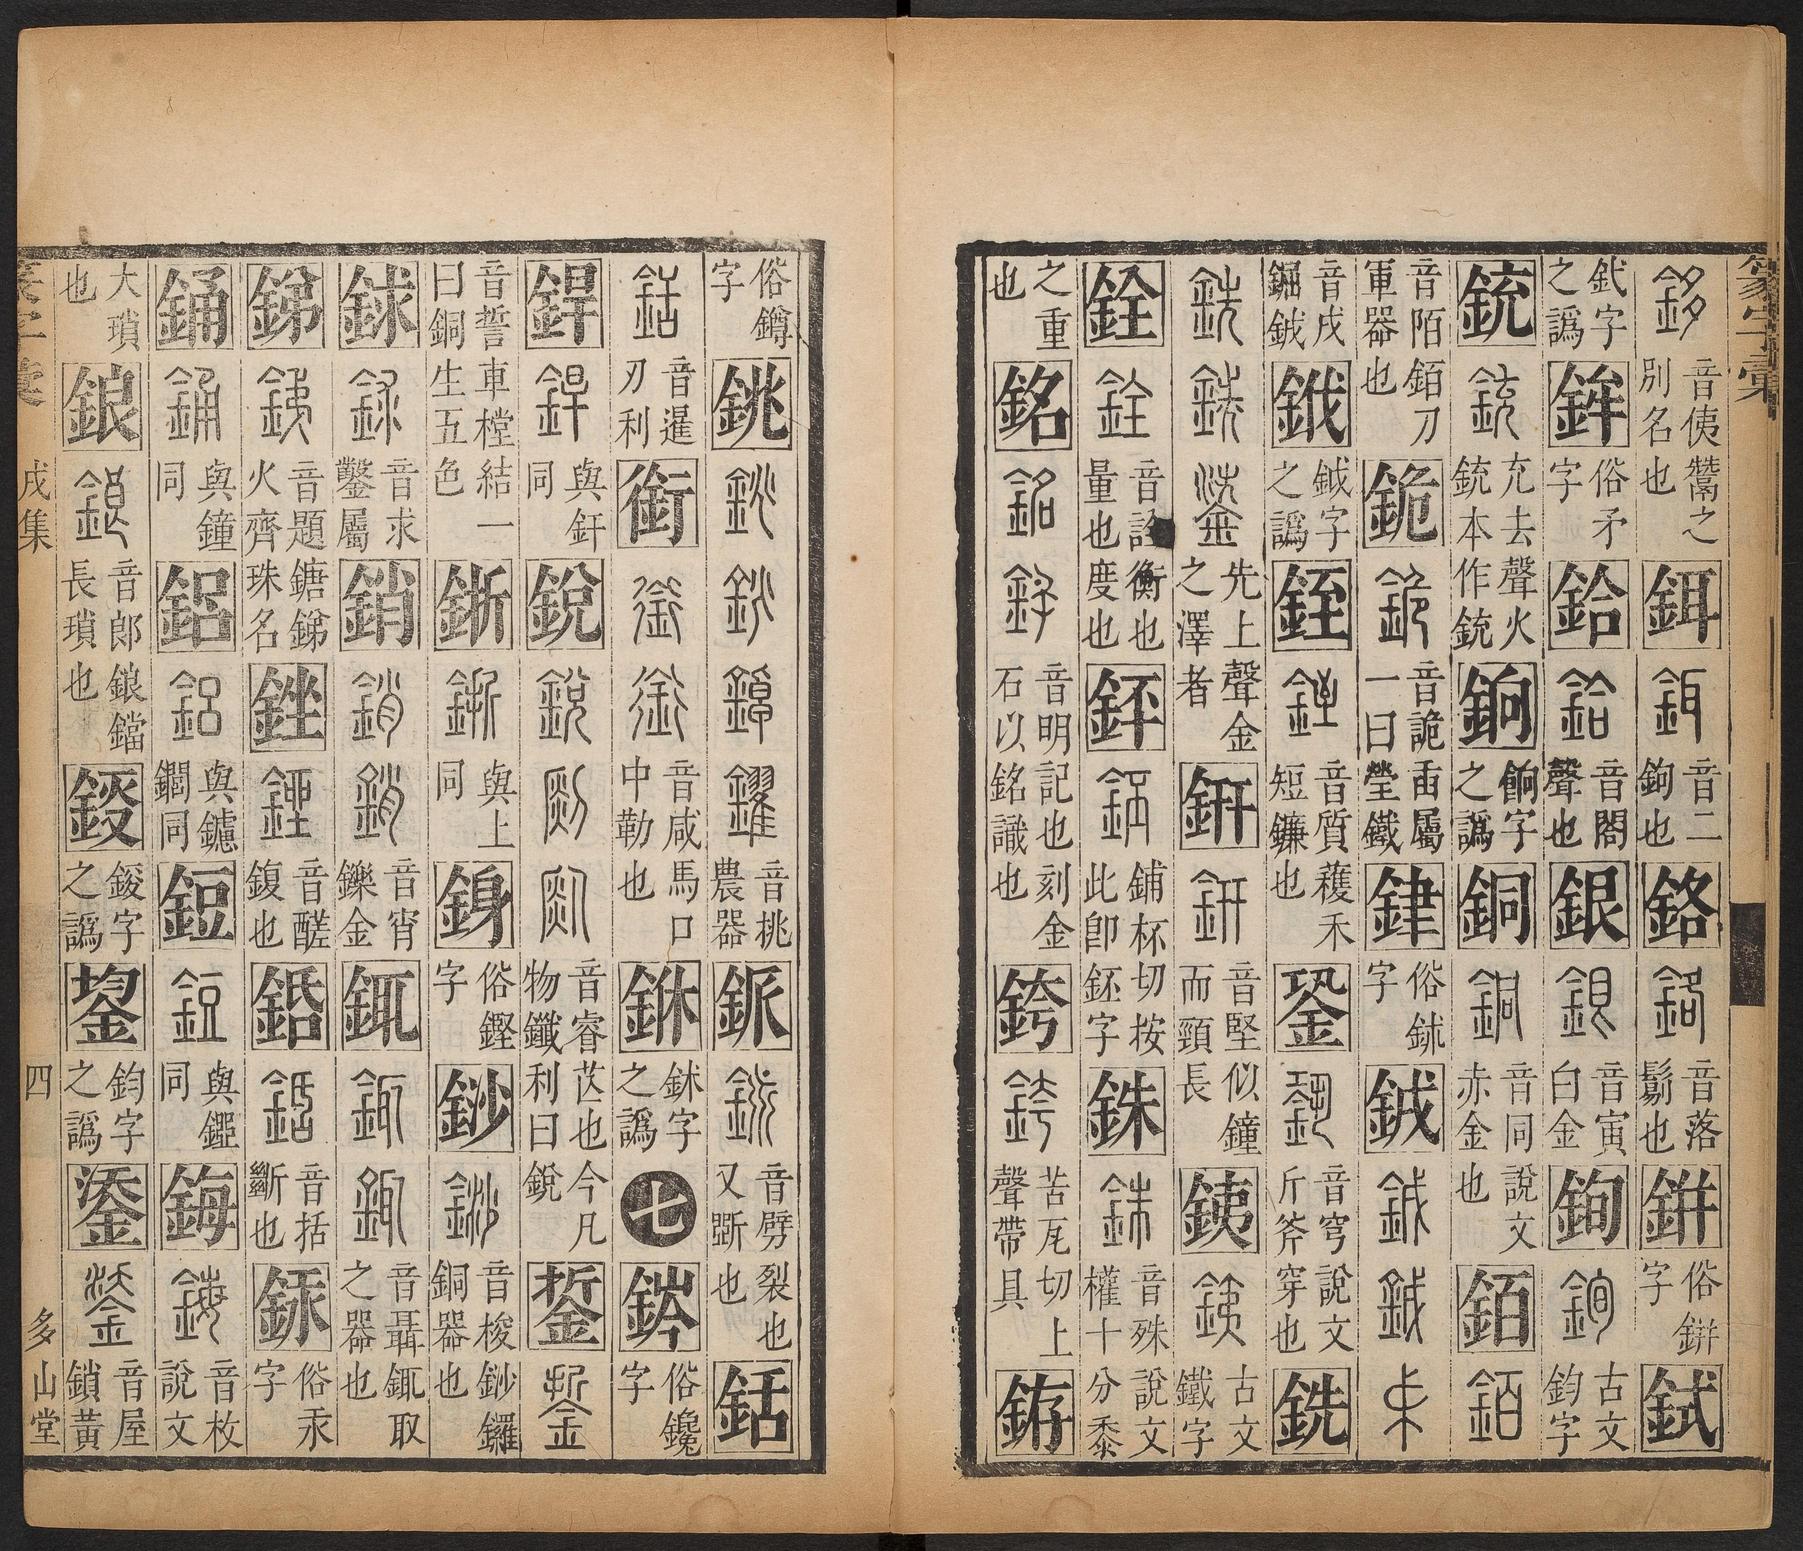 篆字彙
音侇鬵之別名也 鉺 音二鉤也 鉻 音落鬄也 鉼 俗鉼字 鉽
釴字之譌 鉾 俗矛字 鉿 音閤聲也 銀 音寅白金 銁 古文鈞字
銃 充去聲火銃本作銃 銄 餉字之譌 銅 音同說文赤金也 銆
音陌銆刀軍器也 䤥 音詭臿屬一曰瑩鐵 銉 俗鉥字 鉞
鉞字之譌 銍 音質穫禾短鐮也 銎 音穹說文斤斧穿也 銑
先上聲金之澤者 銒 音堅似鐘而頸長 銕 古文鐵字
銓 音詮衡也量也度也 鋪杯切按此卽鉟字 銖 音殊說文權十分黍
之重也 銘 音明記也刻金石以銘識也 銙 苦瓦切上聲帶具 銌
俗鐏字 銚 音挑農器 音劈裂也又斲也 銛
音暹刃利 銜 音咸馬口中勒也 銝 鉥字之譌 七 俗鑱字
銲 與釬同 銳 音睿芒也今凡物鑯利曰銳 銴
音誓車樘結一曰銅生五色 與上同 銵 俗鏗字 音梭鑼銅器也
銶 音求鑿屬 銷 音宵鑠金 銸 音聶銸取之器也
銻 音題鎕銻火齊珠名 銼 音醝鍑也 銽 音括斷也 俗汞字
銿 與鐘同 鋁 與鑢鐧同 鋀 與同 鋂 音枚說文
大瑣也 鋃 音郎鋃鐺長瑣也 鋄 鋄字之譌 鋆 鈞字之譌 鋈 音屋鎖黃
篆字彙 戌集 四 多山堂